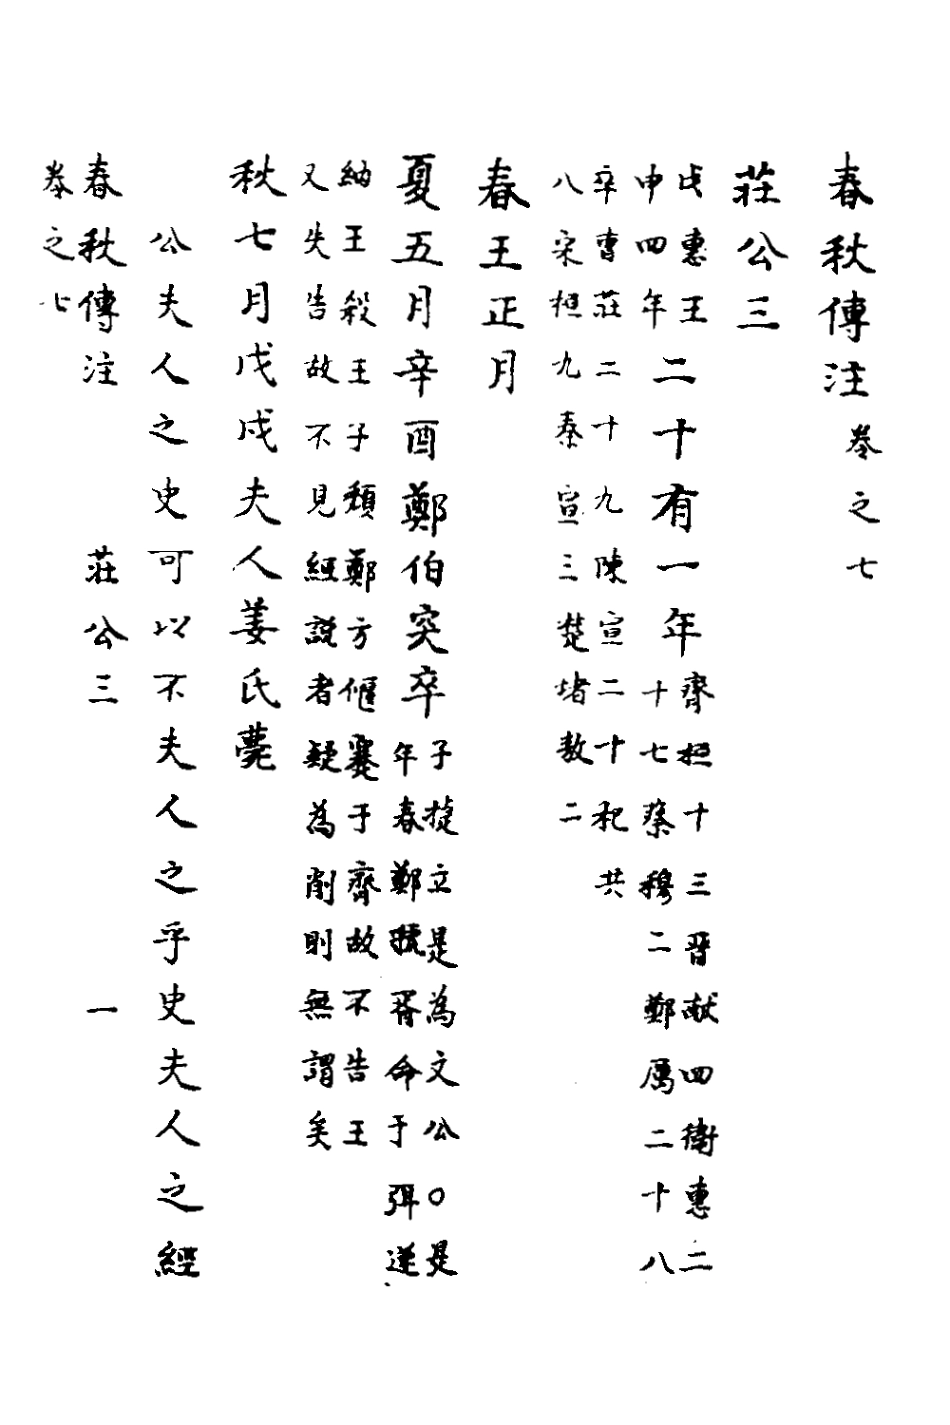 春秋傳注卷之七
莊公三
戊惠王
申四年
二十有一年
齊桓十三晉献四衛惠二
十七蔡穆二鄭厲二十八
卒曹莊二十九陳宣二十杞共
八宋桓九秦宣三楚堵敖二
春王正月
夏五月辛酉鄭伯突卒
子捷立是為文公○是
年春鄭虢胥命于弭遂
納王殺王子頽鄭方偃蹇于齊故不告王
又失告故不見經説者疑為削則無謂矣
秋七月戊戌夫人姜氏薨
公夫人之史可以不夫人之乎史夫人之經
春秋傳注 莊公三 一
卷之七